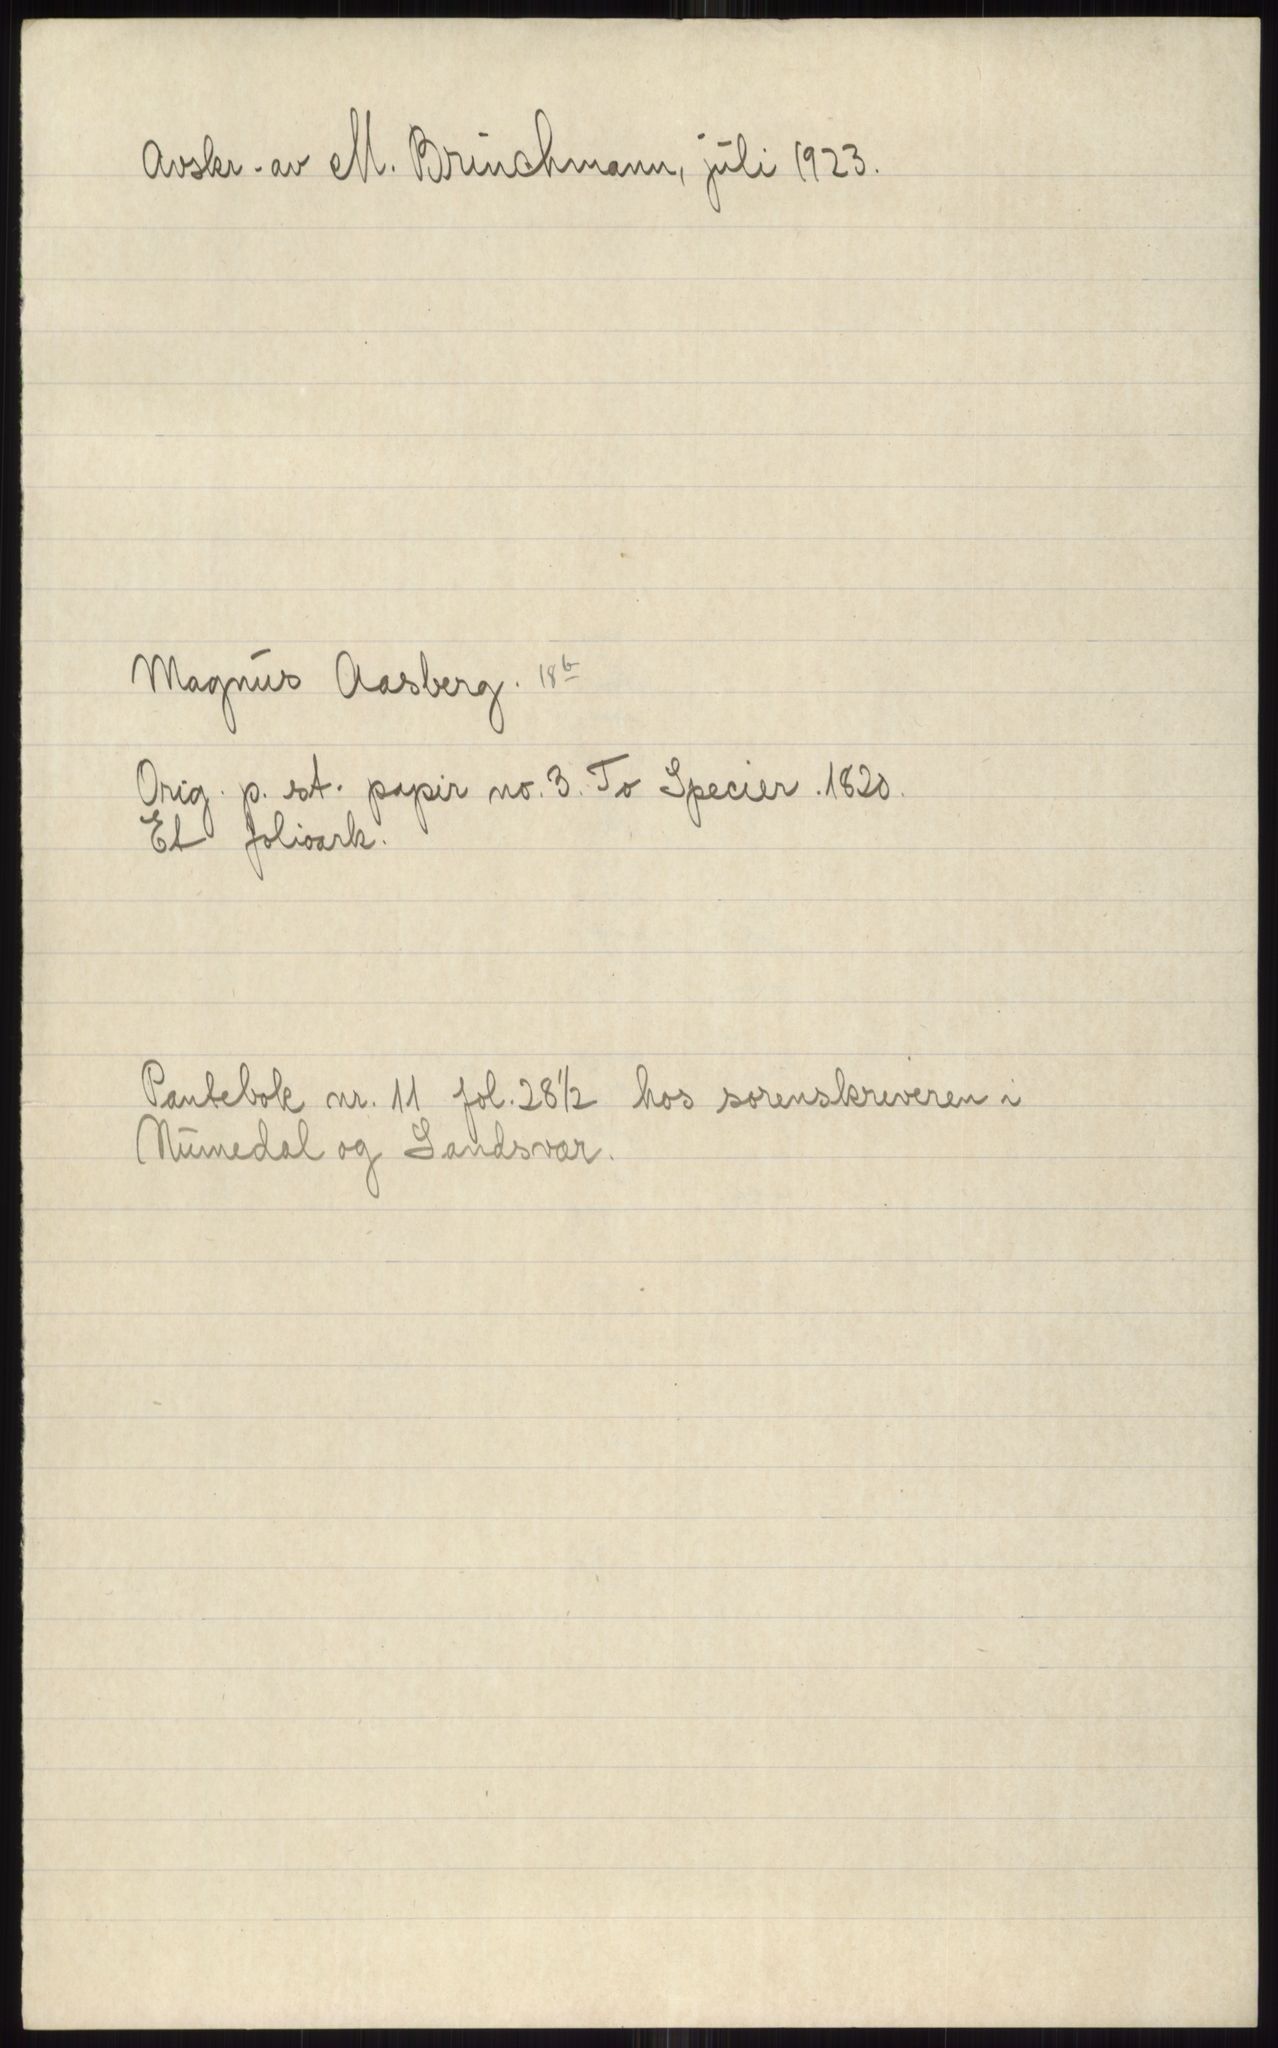 Avskr. av M. Brinchmann, juli 1923.
Magnus Aasberg. 18b
Orig. p. st. papir no. 3. To Specier. 1820.
Et folioark.
Pantebok nr. 11 fol. 28 1/2 hos sorenskriveren i
Numedal og Sandsvær.